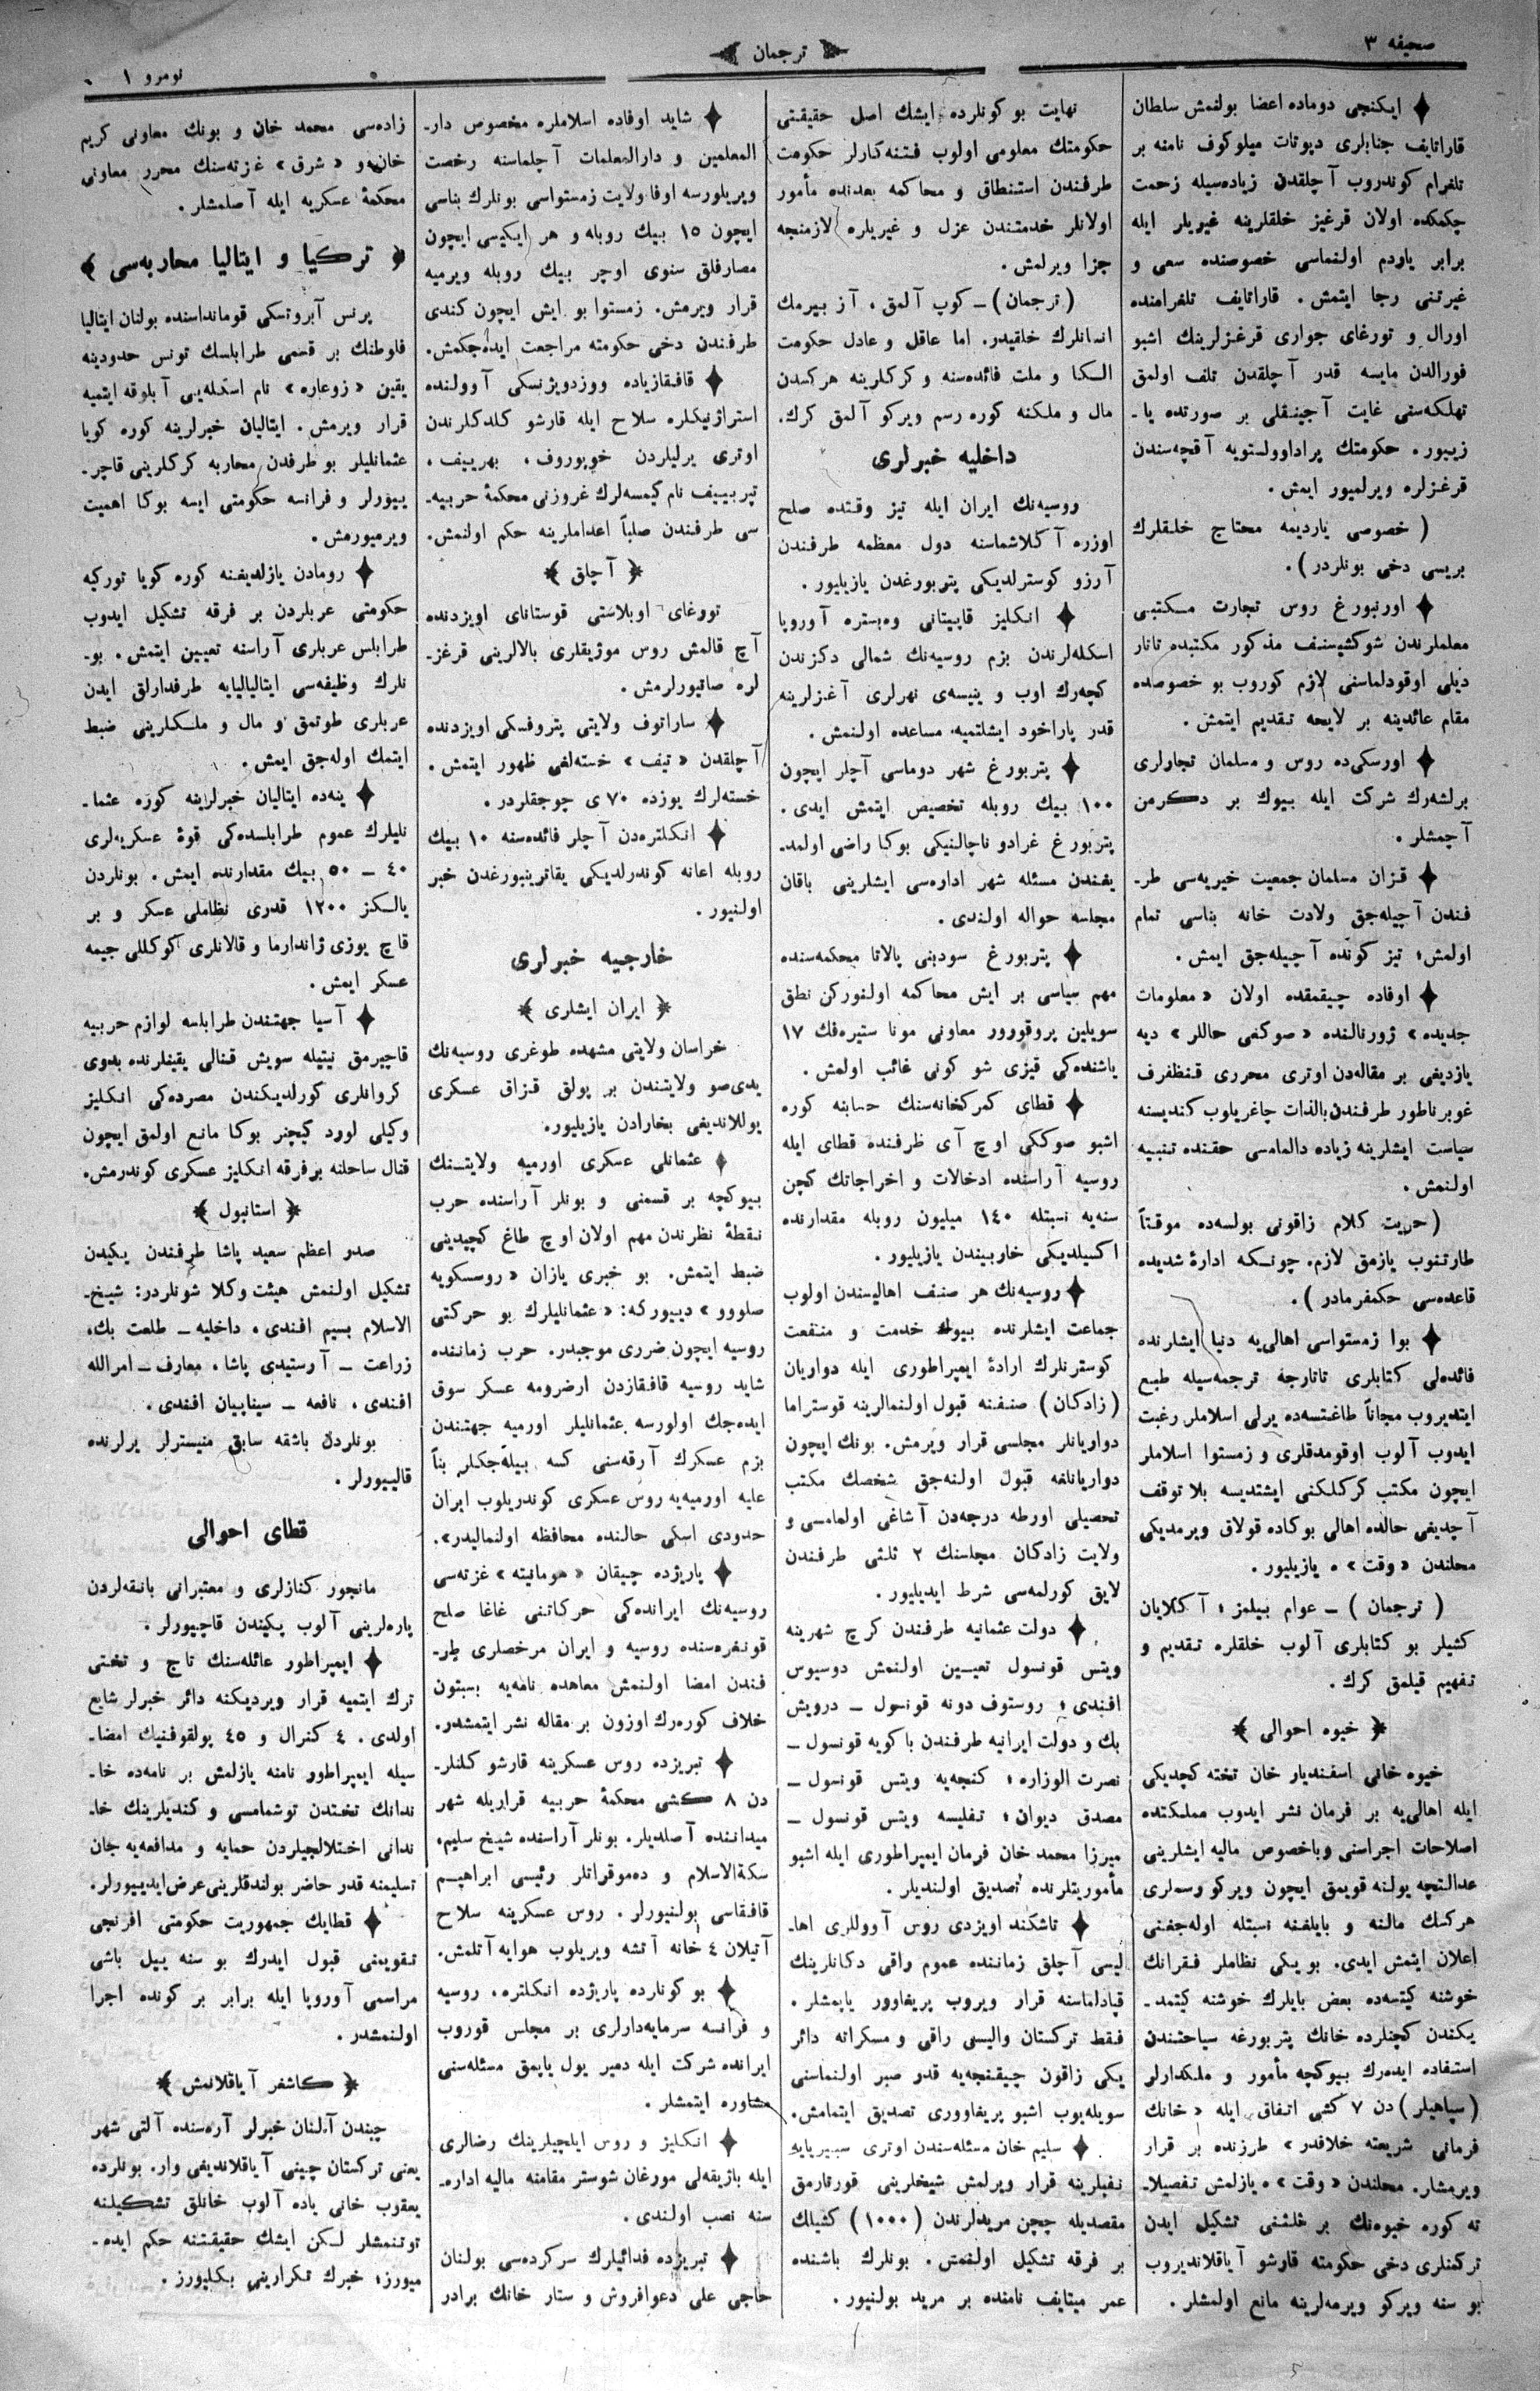 صحیفه ٣
ترجمان
نومرو ١
ایكنجی دوماده اعضا بولنمش سلطان
قاراتایف جنابلری دپوتات میلوكوف نامنه بر
تلغرام كوندروب آچلقدن زیاده‌سیله زحمت
چكمكده اولان قرغیز خلقلرینه غیریلر ایله
برابر یاردم اولنماسی خصوصنده سعی و
غیرتنی رجا ایتمش. قاراتایف تلغرامنده
اورال و تورغای جواری قرغزلرینك اشبو
فورالدن مایسه قدر آچلقدن تلف اولمق
تهلكه‌سنی غایت آجینقلی بر صورتده یا-
زییور. حكومتك پراداوولستویه آقچه‌سندن
قرغزلره ویرلمیور ایمش.
( خصوصی یاردیمه محتاج خلقلرك
بریسی دخی بونلردر ).
اورنبورغ روس تجارت مكتبی
معلملرندن شوكشیسنف مذكور مكتبده تاتار
دیلی اوقودلماسنی لازم كوروب بو خصوصده
مقام عائدینه بر لایحه تقدیم ایتمش.
اورسكی‌ده روس و مسلمان تجاولری
برلشه‌رك شركت ایله بیوك بر دكرمن
آچمشلر.
قزان مسلمان جمعیت خیریه‌سی طر-
فندن آچیله‌جق ولادت خانه بناسی تمام
اولمش؛ تیز كونده آچیله‌جق ایمش.
اوفاده چیقمقده اولان «معلومات
جدیده» ژورنالنده «صوكغی حاللر» دیه
یازدیغی بر مقاله‌دن اوتری محرری قنظفرف
غوبرناطور طرفندن بالذات چاغریلوب كندیسنه
سیاست ایشلرینه زیاده دالمامسی حقنده تنبیه
اولنمش.
(حریت كلام زاقونی بولسه‌ده موقتاً
طارتنوب یازمق لازم. چونكه ادارهٔ شدیده
قاعده‌سی حكمفرمادر ).
بوا زمستواسی اهالی‌یه دنیا ایشلرنده
فائده‌لی كتابلری تاتارجه ترجمه‌سیله طبع
ایتدیروب مجاناً طاغتسه‌ده یرلی اسلاملر رغبت
ایدوب آلوب اوقومدقلری و زمستوا اسلاملر
ایچون مكتب كركلكنی ایشتدیسه بلا توقف
آچدیغی حالده اهالی بوكاده قولاق ویرمدیكی
محلندن «وقت»ه یازیلیور.
( ترجمان ) — عوام بیلمز؛ آكلایان
كشیلر بو كتابلری آلوب خلقلره تقدیم و
تفهیم قیلمق كرك.
﴿ خیوه احوالی ﴾
خیوه خانی اسفندیار خان تخته كچدیكی
ایله اهالی‌یه بر فرمان نشر ایدوب مملكتده
اصلاحات اجراسنی وباخصوص مالیه ایشلرینی
عدالتچه یولنه قویمق ایچون ویركو وسملری
هركسك مالنه و بایلغنه نسبتله اوله‌جغنی
اعلان ایتمش ایدی. بو یكی نظاملر فقرانك
خوشنه كیتسه‌ده بعض بایلرك خوشنه كیتمد-
یكندن كچنلرده خانك پتربورغه سیاحتندن
استفاده ایده‌رك بیوكچه مأمور و ملكدارلر
(سپاهیلر) دن ٧ كشی اتفاق ایله «خانك
فرمانی شریعته خلافدر» طرزنده بر قرار
ویرمشلر. محلندن «وقت»ه یازلمش تفصیلا-
ته كوره خیوه‌نك بر ثلثنی تشكیل ایدن
تركمنلری دخی حكومته قارشو آیاقلاندیروب
بو سنه ویركو ویرمه‌لرینه مانع اولمشلر.
نهایت بو كونلرده ایشك اصل حقیقتی
حكومتك معلومی اولوب فتنه‌كارلر حكومت
طرفندن استنطاق و محاكمه بعدنده مأمور
اولانلر خدمتندن عزل و غیریلره لازمنجه
جزا ویرلمش.
(ترجمان) — كوپ آلمق، آز بیرمك
انسانلرك خلقیدر. اما عاقل و عادل حكومت
الكا و ملت فائده‌سنه و كركلرینه هركسدن
مال و ملكنه كوره رسم ویركو آلمق كرك.
داخلیه خبرلری
روسیه‌نك ایران ایله تیز وقتده صلح
اوزره آكلاشماسنه دول معظمه طرفندن
آرزو كوسترلدیكی پتربورغدن یازیلیور.
انكلیز قاپیتانی وه‌بستره آوروپا
اسكله‌لرندن بزم روسیه‌نك شمالی دكزندن
كچه‌رك اوب و ینیسه‌ی نهرلری آغزلرینه
قدر پاراخود ایشلتمیه مساعده اولنمش.
پتربورغ شهر دوماسی آچلر ایچون
١٠٠ بیك روبله تخصیص ایتمش ایدی.
پتربورغ غرادو ناچالنیكی بوكا راضی اولمد-
یغندن مسئله شهر اداره‌سی ایشلرینی باقان
مجلسه حواله اولندی.
پتربورغ سودبنی پالاتا محكمه‌سنده
مهم سیاسی بر ایش محاكمه اولنوركن نطق
سویلین پروقورور معاونی مونا ستیره‌فك ١٧
یاشنده‌كی قیزی شو كونی غائب اولمش.
قطای كمركخانه‌سنك حسابنه كوره
اشبو صوككی اوچ آی ظرفنده قطای ایله
روسیه آراسنده ادخالات و اخراجاتك كچن
سنه‌یه نسبتله ١٤٠ میلیون روبله مقدارنده
اكسیلدیكی خاربیندن یازیلیور.
روسیه‌نك هر صنف اهالیسندن اولوب
جماعت ایشلرنده بیوك خدمت و منفعت
كوسترنلرك ارادهٔ ایمپراطوری ایله دواریان
(زادكان) صنفنه قبول اولنمالرینه قوستراما
دواریانلر مجلسی قرار ویرمش. بونك ایچون
دواریانلغه قبول اولنه‌جق شخصك مكتب
تحصیلی اورطه درجه‌دن آشاغی اولمامسی و
ولایت زادكان مجلسنك ٢ ثلثی طرفندن
لایق كورلمه‌سی شرط ایدیلیور.
دولت عثمانیه طرفندن كرچ شهرینه
ویتس قونسول تعیین اولنمش دوسیوس
افندی؛ روستوف دونه قونسول — درویش
بك و دولت ایرانیه طرفندن باكویه قونسول —
نصرت الوزاره؛ كنجه‌یه ویتس قونسول —
مصدق دیوان؛ تفلیسه ویتس قونسول —
میرزا محمد خان فرمان ایمپراطوری ایله اشبو
مأموریتلرنده تصدیق اولندیلر.
تاشكند اویزدی روس آووللری اها-
لیسی آچلق زماننده عموم راقی دكانلرینك
قپادلماسنه قرار ویروب پریغاوور یاپمشلر.
فقط تركستان والیسی راقی و مسكراته دائر
یكی زاقون چیقنجه‌یه قدر صبر اولنماسنی
سویله‌یوب اشبو پریغاووری تصدیق ایتمامش.
سلیم خان مسئله‌سندن اوتری سیبیریایه
نفیلرینه قرار ویرلمش شیخلرینی قورتارمق
مقصدیله چچن مریدلرندن (١٠٠٠) كشیلك
بر فرقه تشكیل اولنمش. بونلرك باشنده
عمر میتایف نامنده بر مرید بولنیور.
شاید اوفاده اسلاملره مخصوص دار-
المعلمین و دارالمعلمات آچلماسنه رخصت
ویریلورسه اوفا ولایت زمستواسی بونلرك بناسی
ایچون ١٥ بیك روبله و هر ایكیسی ایچون
مصارفلق سنوی اوچر بیك روبله ویرمیه
قرار ویرمش. زمستوا بو ایش ایچون كندی
طرفندن دخی حكومته مراجعت ایده‌جكمش.
قافقازیاده ووزدویژنسكی آوولنده
استراژنیكلره سلاح ایله قارشو كلدكلرندن
اوتری یرلیلردن خوبوروف، بهرییف،
تپربییف نام كیمسه‌لرك غروزنی محكمهٔ حربیه-
سی طرفندن صلباً اعداملرینه حكم اولنمش.
﴿ آچلق ﴾
تورغای اوبلاستی قوستانای اویزدنده
آچ قالمش روس موژیقلری بالالرینی قرغز-
لره صاتیورلرمش.
ساراتوف ولایتی پتروفسكی اویزدنده
آچلقدن «تیف» خسته‌لغی ظهور ایتمش.
خسته‌لرك یوزده ٧٠ ی چوجقلردر.
انكلتره‌دن آچلر فائده‌سنه ١٠ بیك
روبله اعانه كوندرلدیكی یقاترینبورغدن خبر
اولنیور.
خارجیه خبرلری
﴿ ایران ایشلری ﴾
خراسان ولایتی مشهده طوغری روسیه‌نك
یدی‌صو ولایتندن بر پولق قزاق عسكری
یوللاندیغی بخارادن یازیلیور.
عثمانلی عسكری اورمیه ولایتنك
بیوكچه بر قسمنی و بونلر آراسنده حرب
نقطهٔ نظرندن مهم اولان اوچ طاغ كچیدینی
ضبط ایتمش. بو خبری یازان «روسسكویه
صلووو» دییوركه: «عثمانلیلرك بو حركتی
روسیه ایچون ضرری موجبدر. حرب زماننده
شاید روسیه قافقازدن ارضرومه عسكر سوق
ایده‌جك اولورسه عثمانلیلر اورمیه جهتندن
بزم عسكرك آرقه‌سنی كسه بیله‌جكلر بناً
علیه اورمیه‌یه روس عسكری كوندریلوب ایران
حدودی اسكی حالنده محافظه اولنمالیدر».
پاریژده چیقان «هومانیته» غزته‌سی
روسیه‌نك ایرانده‌كی حركاتنی غاغا صلح
قونفره‌سنده روسیه و ایران مرخصلری طر-
فندن امضا اولنمش معاهده نامه‌یه بسبتون
خلاف كوره‌رك اوزون بر مقاله نشر ایتمشدر.
تبریزده روس عسكرینه قارشو كلنلر-
دن ٨ كشی محكمهٔ حربیه قراریله شهر
میداننده آصلدیلر. بونلر آراسنده شیخ سلیم،
سكةالاسلام و ده‌موقراتلر رئیسی ابراهیم
قافقاسی بولنیورلر. روس عسكرینه سلاح
آتیلان ٤ خانه آتشه ویریلوب هوایه آتلمش.
بو كونلرده پاریژده انكلتره، روسیه
و فرانسه سرمایه‌دارلری بر مجلس قوروب
ایرانده شركت ایله دمیر یول یاپمق مسئله‌سنی
مشاوره ایتمشلر.
انكلیز و روس ایلچیلرینك رضالری
ایله باژیقه‌لی مورغان شوستر مقامنه مالیه اداره-
سنه نصب اولندی.
تبریزده فدائیلرك سركرده‌سی بولنان
حاجی علی دعوافروش و ستار خانك برادر
زاده‌سی محمد خان و بونك معاونی كریم
خان و «شرق» غزته‌سنك محرر معاونی
محكمهٔ عسكریه ایله آصلمشلر.
﴿ تركیا و ایتالیا محاربه‌سی ﴾
پرنس آبروتسكی قومانداسنده بولنان ایتالیا
فلوطنك بر قسمی طرابلسك تونس حدودینه
یقین «زوعاره» نام اسكله‌یی آبلوقه ایتمیه
قرار ویرمش. ایتالیان خبرلرینه كوره كویا
عثمانلیلر بو طرفدن محاربه كركلرینی قاچر-
ییورلر و فرانسه حكومتی ایسه بوكا اهمیت
ویرمیورمش.
رومادن یازلدیغنه كوره كویا توركیه
حكومتی عربلردن بر فرقه تشكیل ایدوب
طرابلس عربلری آراسنه تعیین ایتمش. بو-
نلرك وظیفه‌سی ایتالیالیایه طرفدارلق ایدن
عربلری طوتمق و مال و ملكلرینی ضبط
ایتمك اوله‌جق ایمش.
ینه‌ده ایتالیان خبرلرینه كوره عثما-
نلیلرك عموم طرابلسده‌كی قوهٔ عسكریه‌لری
٤٠ — ٥٠ بیك مقدارنده ایمش. بونلردن
یالكز ١٢٠٠ قدری نظاملی عسكر و بر
قاچ یوزی ژاندارما و قالانلری كوكللی جیمه
عسكر ایمش.
آسیا جهتندن طرابلسه لوازم حربیه
قاچیرمق نیتیله سویش قنالی یقینلرنده بدوی
كروانلری كورلدیكندن مصرده‌كی انكلیز
وكیلی لورد كیچنر بوكا مانع اولمق ایچون
قنال ساحلنه بر فرقه انكلیز عسكری كوندرمش.
﴿ استانبول ﴾
صدر اعظم سعید پاشا طرفندن یكیدن
تشكیل اولنمش هیئت وكلا شونلردر: شیخ-
الاسلام بسیم افندی، داخلیه — طلعت بك،
زراعت — آرستیدی پاشا، معارف — امرالله
افندی، نافعه — سیناپیان افندی.
بونلردن باشقه سابق منیسترلر یرلرنده
قالییورلر.
قطای احوالی
مانجور كنازلری و معتبرانی بانقه‌لردن
پاره‌لرینی آلوب پكیندن قاچیورلر.
ایمپراطور عائله‌سنك تاج و تختی
ترك ایتمیه قرار ویردیكنه دائر خبرلر شایع
اولدی. ٤ كنرال و ٤٥ پولقوفنیك امضا-
سیله ایمپراطور نامنه یازلمش بر نامه‌ده خا-
ندانك تختدن توشمامسی و كندیلرینك خا-
ندانی اختلالجیلردن حمایه و مدافعه‌یه جان
تسلیمنه قدر حاضر بولندقلرینی عرض ایدییورلر.
قطایك جمهوریت حكومتی افرنجی
تقویمنی قبول ایدرك بو سنه ییل باشی
مراسمی آوروپا ایله برابر بر كونده اجرا
اولنمشدر.
﴿ كاشغر آیاقلانمش ﴾
چیندن آلنان خبرلر آره‌سنده آلتی شهر
یعنی تركستان چینی آیاقلاندیغی وار. بونلرده
یعقوب خانی یاده آلوب خانلق تشكیلنه
توتنمشلر لكن ایشك حقیقتنه حكم ایده-
میورز؛ خبرك تكرارینی بكلیورز.